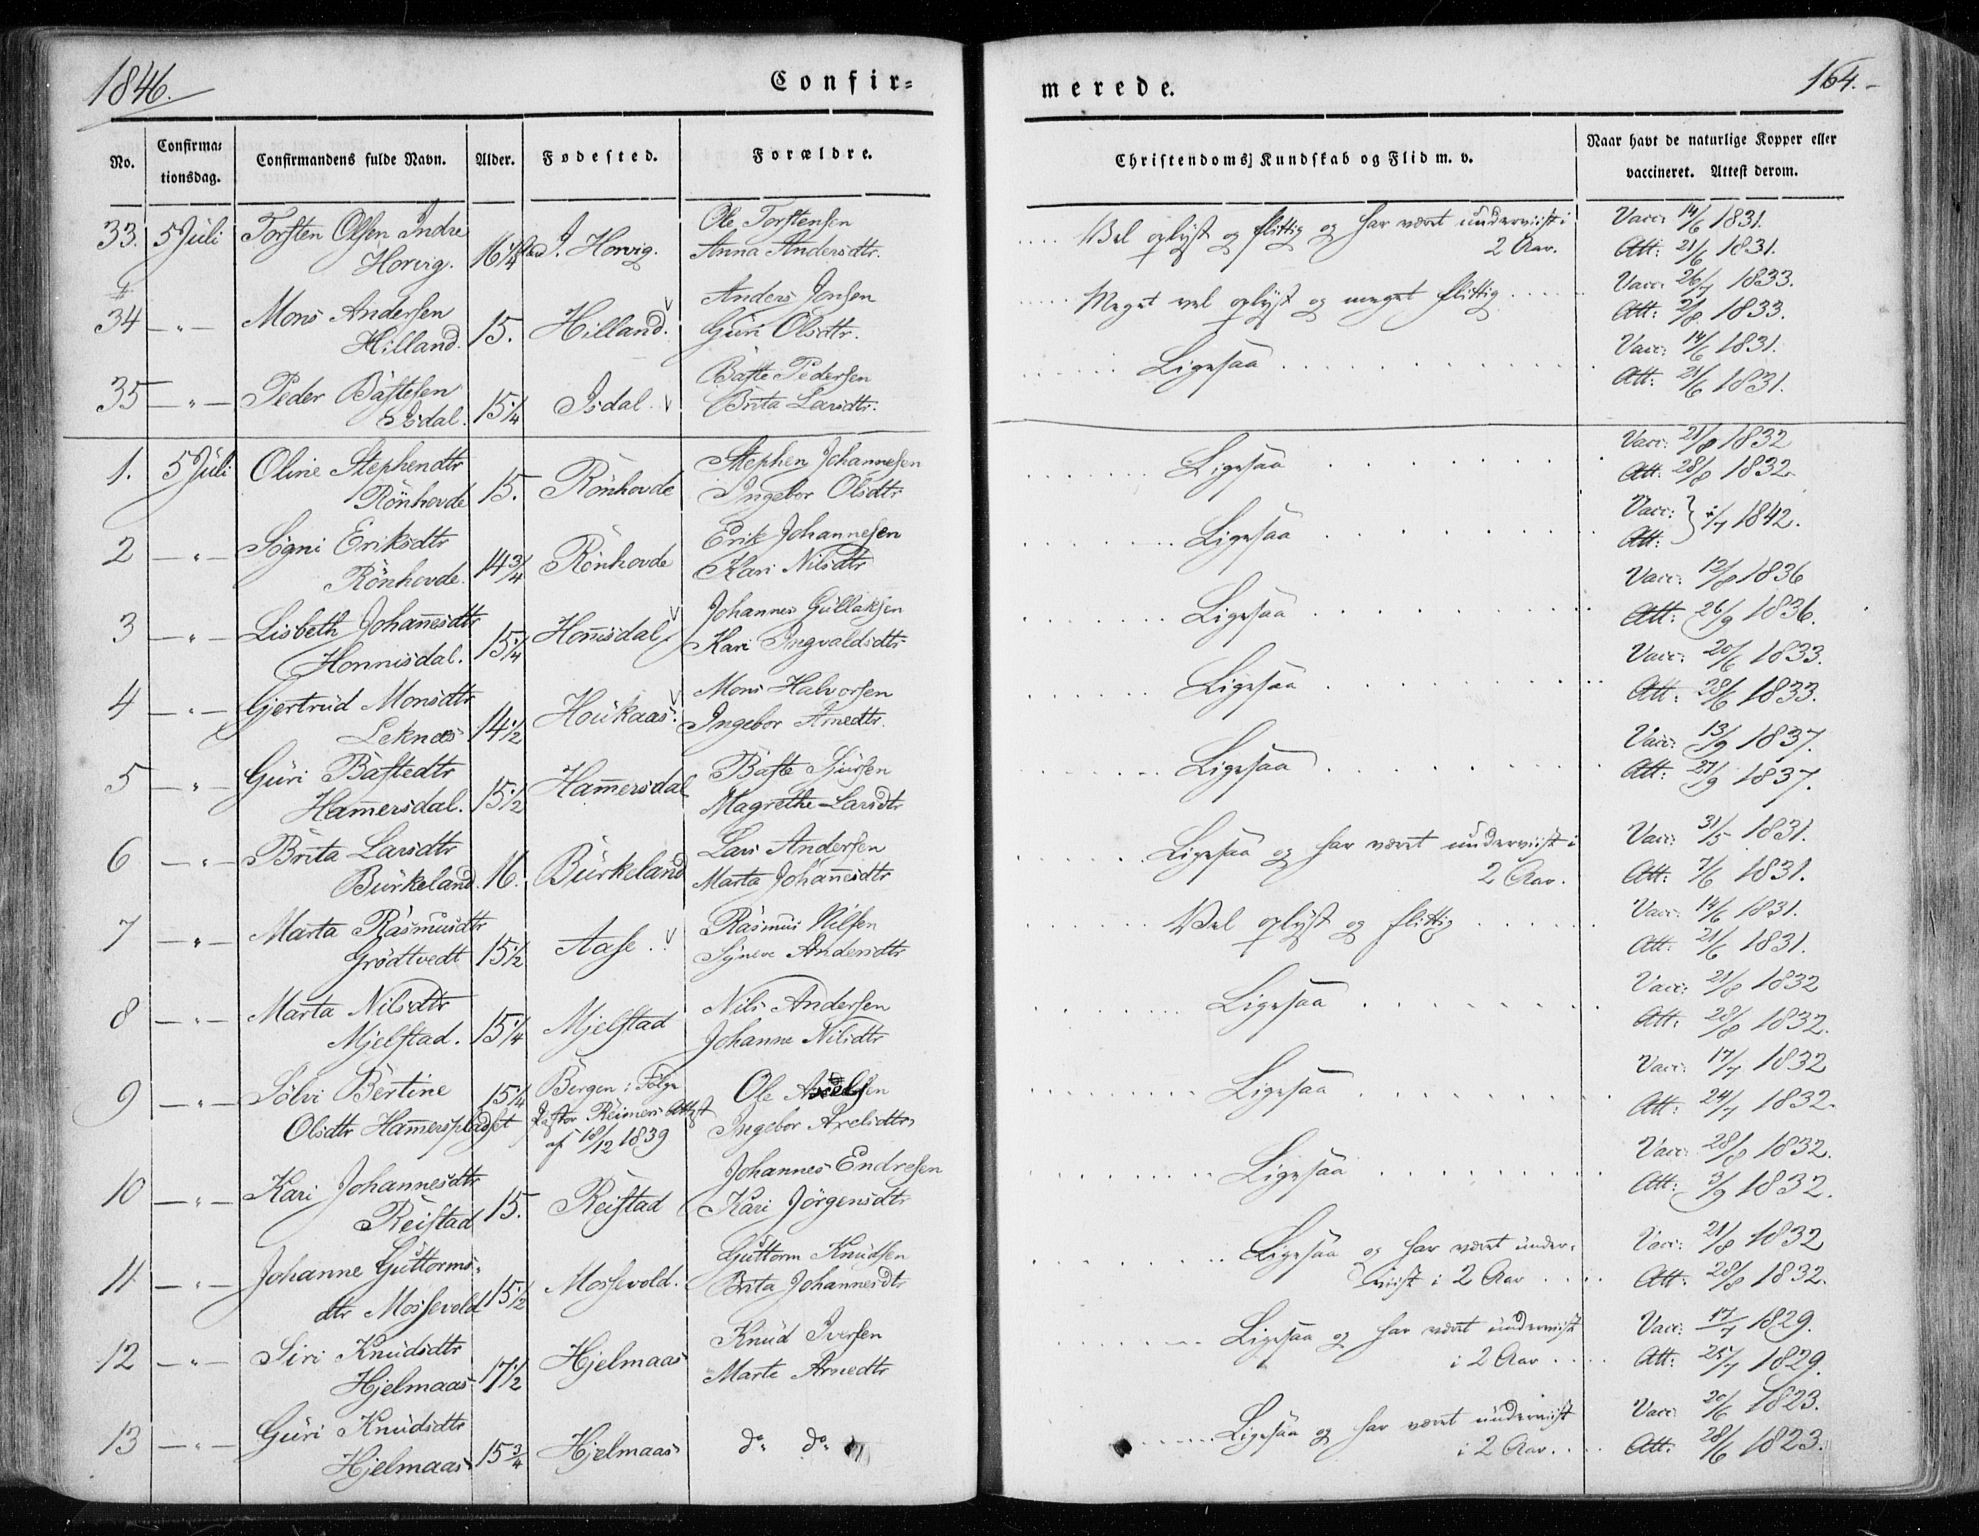 1846.
Confir=
No.
Confirma=
tionsdag.
Confirmandens fulde Navn.
Alder.
Fødested.
Forældre.
33. 5 Juli Torsten Olsen Indre 16 1/4 I. Horvig. Ole Torstensen
Horvig. Anna Andersdtr.
34 — " — Mons Andersen 15. Hilland. Anders Jonsen
Hilland. Guri Olsdtr.
35 — " — Peder Baste­sen 15 1/4 Isdal. Baste Pedersen
Isdal. Brita Larsdtr.
1. 5 Juli Oline Stephendtr 15. Rönhovde Stephen Johannesen
Rönhovde Ingebor Olsdtr
2 — " — Sögni Eriksdtr 14 3/4 Rönhovde Erik Johannesen
Rönhovde. Kari Nilsdtr
3 — " — Lisbeth Johan̄esdtr 15 1/4 Hon̄isdal Johannes Gullaksen
Honnisdal. Kari Ingvaldsdtr
4 — " — Gjertrud Monsdtr 14 1/2 Houkaas. Mons Halvorsen
Leknæs Ingebor Arnedtr.
5 — " — Guri Bastedtr 15 1/2 Ham̄ersdal Baste Sjursen
Ham̄ersdal. Magrethe Larsdtr
6 — " — Brita Larsdtr 16. Burkeland Lars Andersen
Burkeland. Marta Johan̄esdtr
7 — " — Marta Rasmusdtr 15 1/2 Aase Rasmus Nilsen
Grödtvedt Syneve Andersdtr
8 — " — Marta Nilsdtr 15 1/4 Mjelstad Nils Andersen
Mjelstad. Johanne Nilsdtr
9 — " — Sölvi Bertine 15 1/4 Bergen i Fölge Ole
Olsdtr Ham̄erspladset Pastor Reimers Attest Ingebor Axelsdtr
af 18/12 1839
10 — " — Kari Johannesdtr 15. Reistad Johannes Endresen
Reistad Kari Jörgensdtr
11 — " — Johanne Guttorms= 15 1/2 Mossevold. Guttorm Knudsen
dtr Mossevold Brita Johannesdtr
12 — " — Siri Knudsdtr 17 1/2 Hjelmaas Knud Iversen
Hjelmaas Marte Arnedtr
13 — " — Guri Knudsdtr 15 3/4 Hjelmaas do do
Hjelmaas
merede.
164.
Christendoms Kundskab og Flid m. v.
Naar havt de naturlige Kopper eller
vaccineret. Attest derom.
Vel oplyst og flittig og har været underviist i Vacc: 14/6 1831.
2 Aar. Att: 21/6 1831.
Meget vel oplyst og meget flittig Vacc: 26/7 1833.
Att: 2/8 1833.
Ligesaa Vacc: 14/6 1831.
Att: 21/6 1831.
Ligesaa Vacc: 21/8 1832
Att: 28/8 1832.
Ligesaa Vacc: } 1/7 1842.
Att:
Ligesaa Vacc: 12/8 1836
Att: 26/9 1836.
Ligesaa Vacc: 20/6 1833.
Att: 28/6 1833.
Ligesaa Vacc: 13/9 1837.
Att: 21/9 1837.
Ligesaa og har været underviist i Vacc: 31/5 1831.
2 Aar. Att: 7/6 1831.
Vel oplyst og flittig Vacc: 14/6 1831.
Att: 21/6 1831.
Ligesaa Vacc: 21/8 1832
Att: 28/8 1832.
Ligesaa Vacc: 17/7 1832
Att: 24/7 1832.
Ligesaa Vacc: 28/8 1832.
Att: 3/9 1832.
Ligesaa og har været under= Vacc: 21/8 1832
viist i 2 Aar Att: 28/8 1832.
Ligesaa og har været underviist Vacc: 17/7 1829.
i 2 Aar Att: 25/7 1829.
Ligesaa og har været underviist Vacc: 20/6 1823.
i 2 Aar. Att: 28/6 1823.